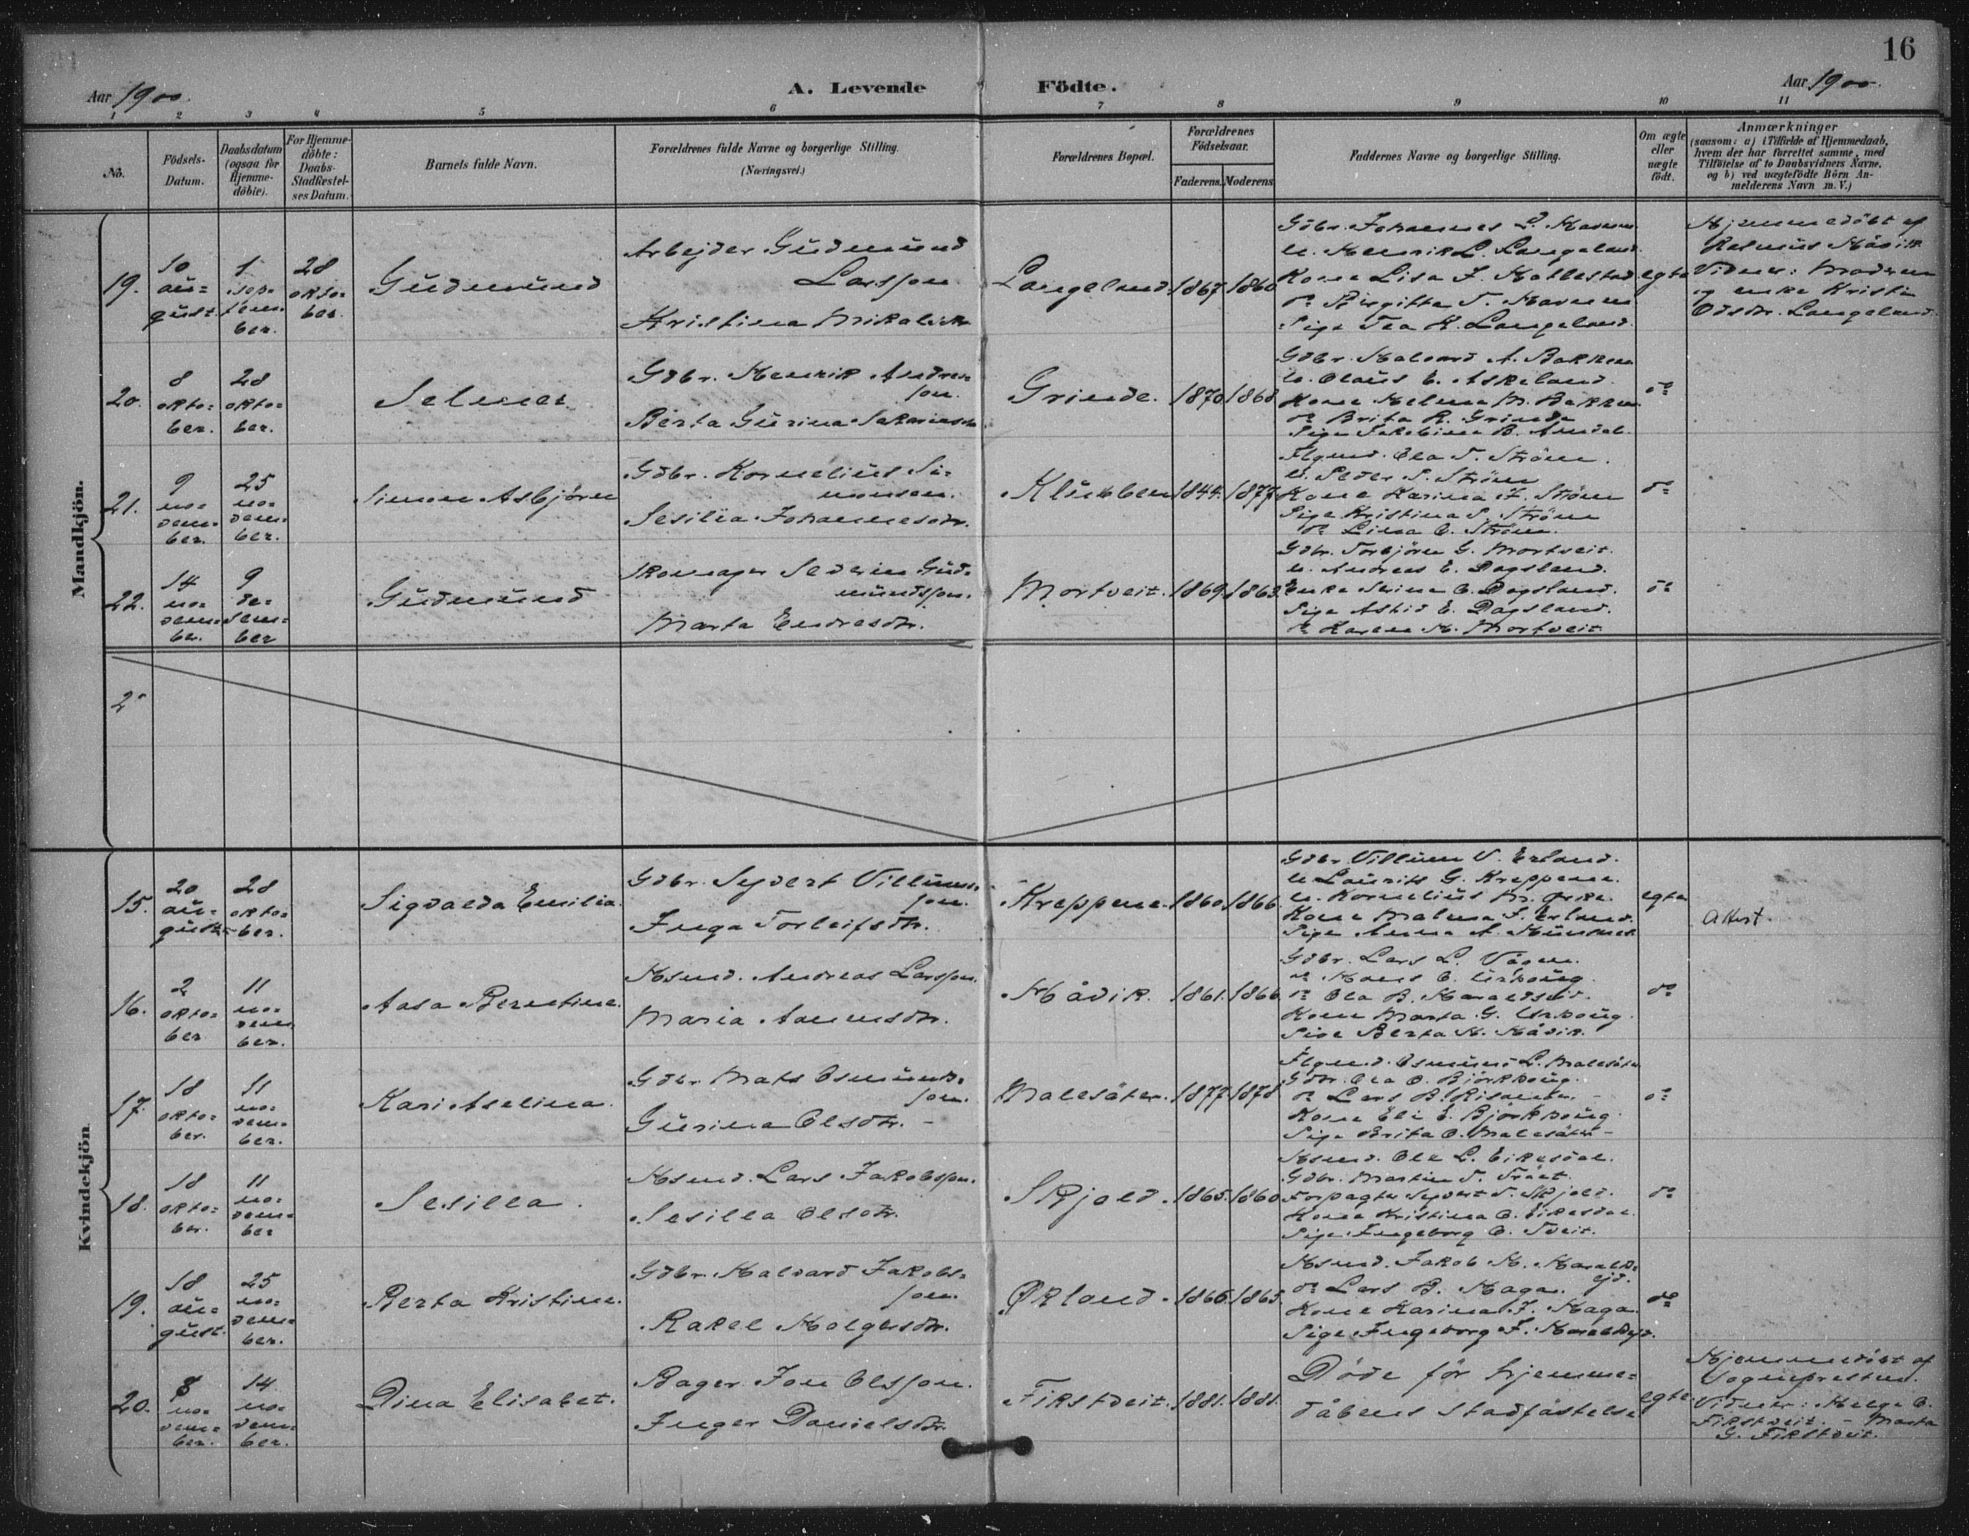 16
Aar 1900.
A. Levende Födte.
Aar 1900.
1 2 3 4 5 6 7 8 9 10 11
No.
Födsels-Datum.
Daabsdatum (ogsaa for Hjemme-döbte).
For Hjemme-döbte: Daabs-Stadfæstel-ses Datum.
Barnets fulde Navn.
Forældrenes fulde Navne og borgerlige Stilling.
(Næringsvei.)
Forældrenes Bopæl.
Forældrenes Födselsaar.
Faderens. Moderens.
Faddernes Navne og borgerlige Stilling.
Om ægte eller uægte födt.
Anmærkninger
(saasom: a) i Tilfælde af Hjemmedaab,
hvem der har forrettet samme, med
Tilföielse af to Daabsvidners Navne,
og b) ved uægtefödte Börn An-
melderens Navn m. V.)
Mandkjön.
19.
10 au=
gust
1 sep=
tem=
ber.
28 okto=
ber.
Gudmund
Arbejder Gudmund
Larsson
Kristina
Langeland
1867 1860
Gdbr. Johannes L.
u. Henrik L. Langeland
Kone Lisa J.
do Birgitta T.
Pige Tea K. Langeland.
egte
Hjemmedöbt af
Rasmus Håvik
Vidner: Moderen
og enke Kristin
Odsdtr. Langeland.
20.
8 okto=
ber.
28 okto=
ber.
Selmer
Gdbr. Henrik Andrea=
son.
Berta Gurina
Grinde.
1870 1868
Gdbr. Halvard A. Bakken
u. Claus E. Askeland.
Kone Helena M. Bakken
do Brita R. Grinde
Pige Jakobina B.
do
21.
9 no=
vem=
ber.
25 no=
vem=
ber.
Simon Asbjörn
Gdbr. Kornelius Si=
monsen.
Sesilia Johannesdtr.
Klubben
1844. 1877
Ola T. Ström.
u. Peder S. Ström
Kone Karina J. Ström
Pige Kristina P. Ström
do Lina O. Ström.
do
22.
14 no=
vem=
ber.
9 de=
sem=
ber
Gudmund
Skomager Severin Gud=
mundsson.
Marta Endresdtr.
Mortveit.
1869. 1863.
Gdbr. Torbjörn G. Mortveit.
u. Andreas E. Dagsland.
Enke Serina O. Dagsland.
Pige Astrid E. Dagsland.
do Karen H. Mortveit
do
2
Kvindekjön
15.
20 au=
gust
28 okto=
ber.
Sigvalda Emilia.
Gdbr. Syvert Villums=
son.
Inga Torleifsdtr.
Kreppene.
1860. 1866.
Gdbr. Villum V. Erland.
u. Laurits G. Kreppene.
u. Kornelius M.
Kone Malena S. Erland.
Pige Anna A.
egte
Attest.
16.
2 okto=
ber.
11 no=
vem=
ber.
Aasa Berentine.
Hsmd. Andreas Larsson.
Maria
Håvik.
1861. 1866.
Gdbr. Lars L. Vågen.
do Hans O. Urhoug.
do Ola B. Haraldseid.
Kone Marta G. Urhoug.
Pige Berta H. Håvik.
do
17.
18 okto=
ber.
11 no=
vem=
ber.
Kari Aselina.
Gdbr. Mats Osmunds=
son.
Gurina Olsdtr. –
Malesäter.
1877. 1878.
Osmund L. Malesäter
Gdbr. Ola O. Björkhoug.
do Lars B.
Kone Eli E. Björkhoug.
Pige Brita O. Malesäter –
do
18.
18 okto=
ber.
11 no=
vem=
ber
Sesilia.
Hsmd. Lars Jakobsson.
Sesilia Olsdtr.
Skjold.
1865. 1860.
Hsmd. Ole L. Eikesdal.
Gdbr. Martin T. Tveit.
Forpagter Syvert T. Skjold.
Kone Kristina O. Eikesdal.
Pige Ingeborg O. Tveit.
do
19.
18 au=
gust.
25 no=
vem=
ber.
Berta Kristine.
Gdbr. Halvard Jakobs=
son.
Rakel Holgersdtr.
Ørland.
1866. 1865.
Hsmd. Jakob H. Haralds=
ejd.
do Lars B. Haga.
Kone Karina J. Haga.
Pige Ingeborg J. Haraldsejd.
do
20.
8 no=
vem=
ber.
14 no=
vem=
ber.
Dina Elisabet.
Bager Jon Olsson.
Inger Danielsdtr.
Fikstveit.
1881. 1881.
Døde før hjemme=
dåbens Stadfästelse
egte
Hjemmedöbt af
Sognepresten.
Vidner: Helge O.
Fikstveit. – Marta
G. Fikstveit.